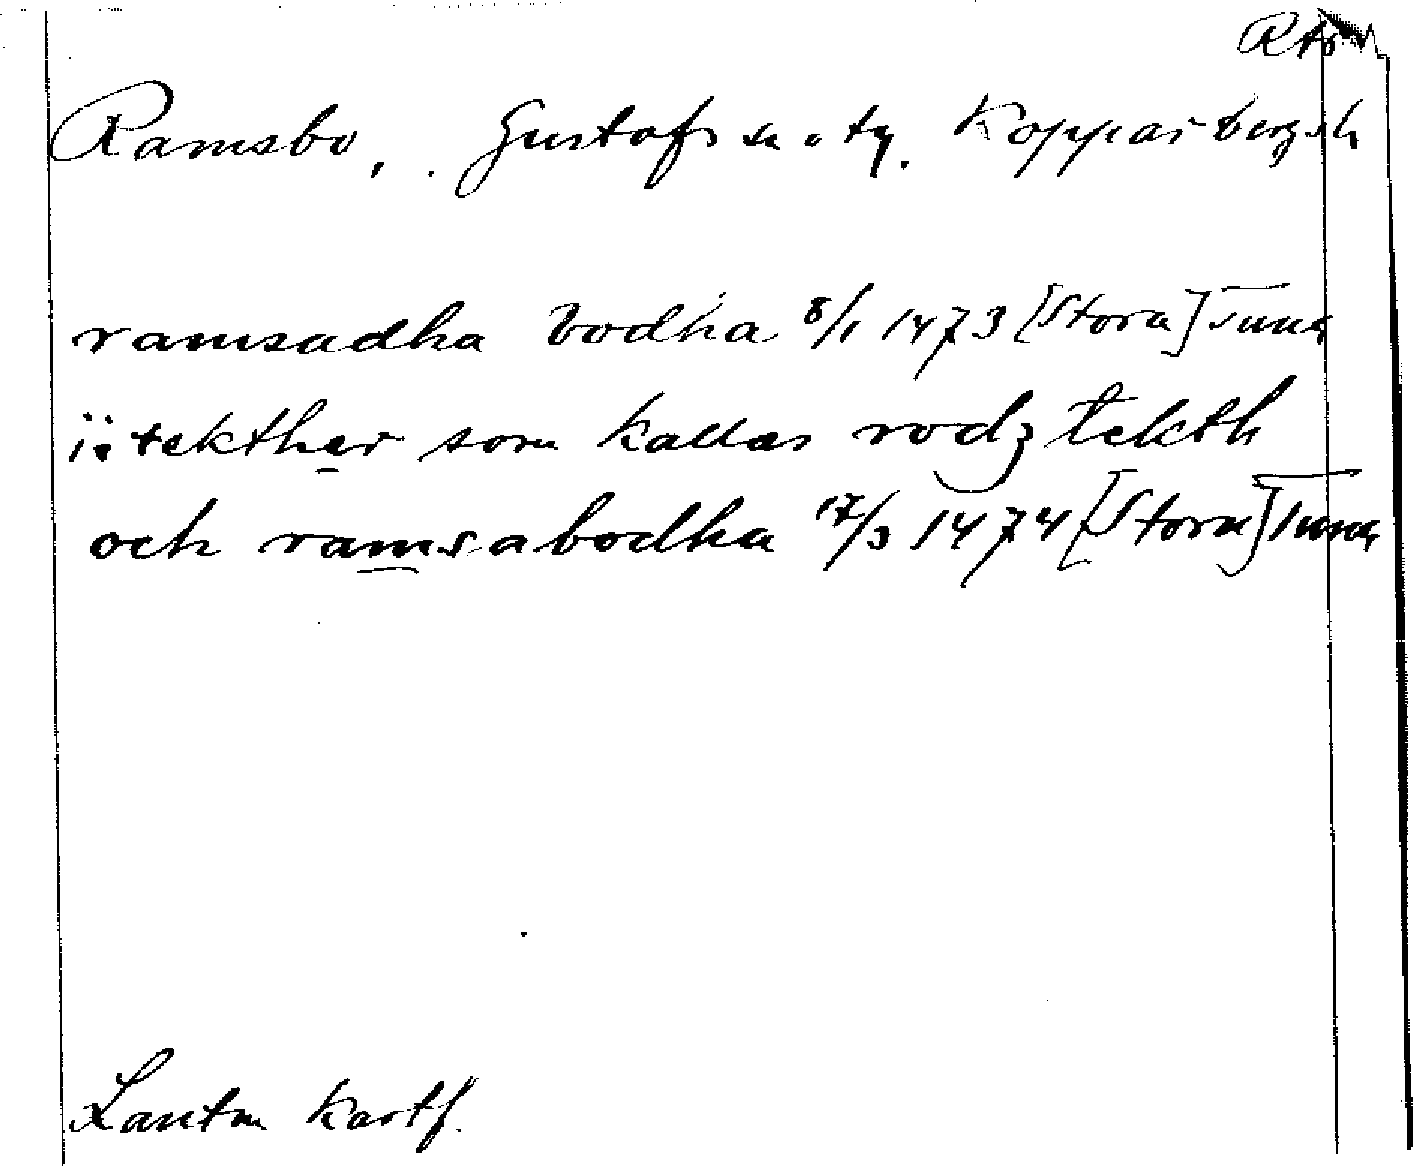 Ramsbo, . Gustafs sn o tg. Kopparbergs l.
ramsadha bodha 8/1 1473 [Stora] Tuna
ii tekther som kallas rodz tekth
och ramsabodha 17/3 1474 [Stora] Tuna
Lantm kartf.